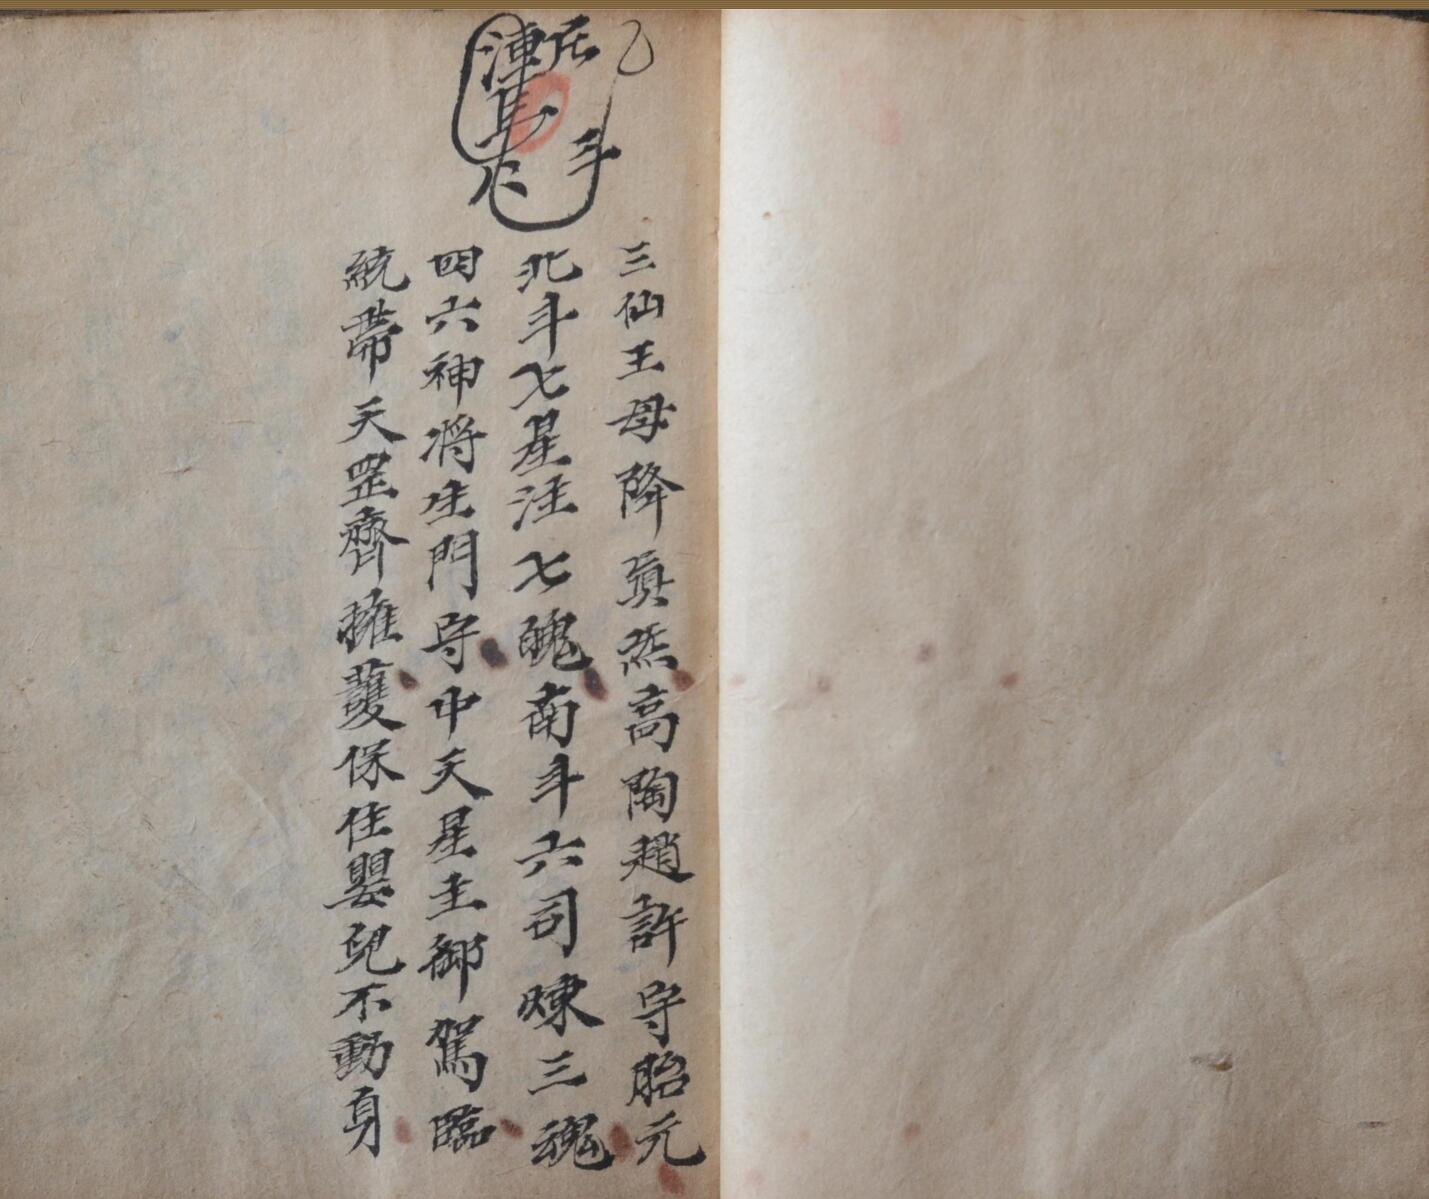 三仙王母降真炁高陶趙許守胎元
北斗七星注七魄南斗六司煉三魂
四六神將生門守中天星主御駕臨
統帶天罡齊擁護保住嬰兒不動身